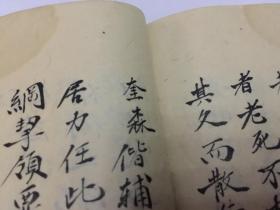 者老死不
其久而散
奎森偕輔
居力任此
綱挈領要